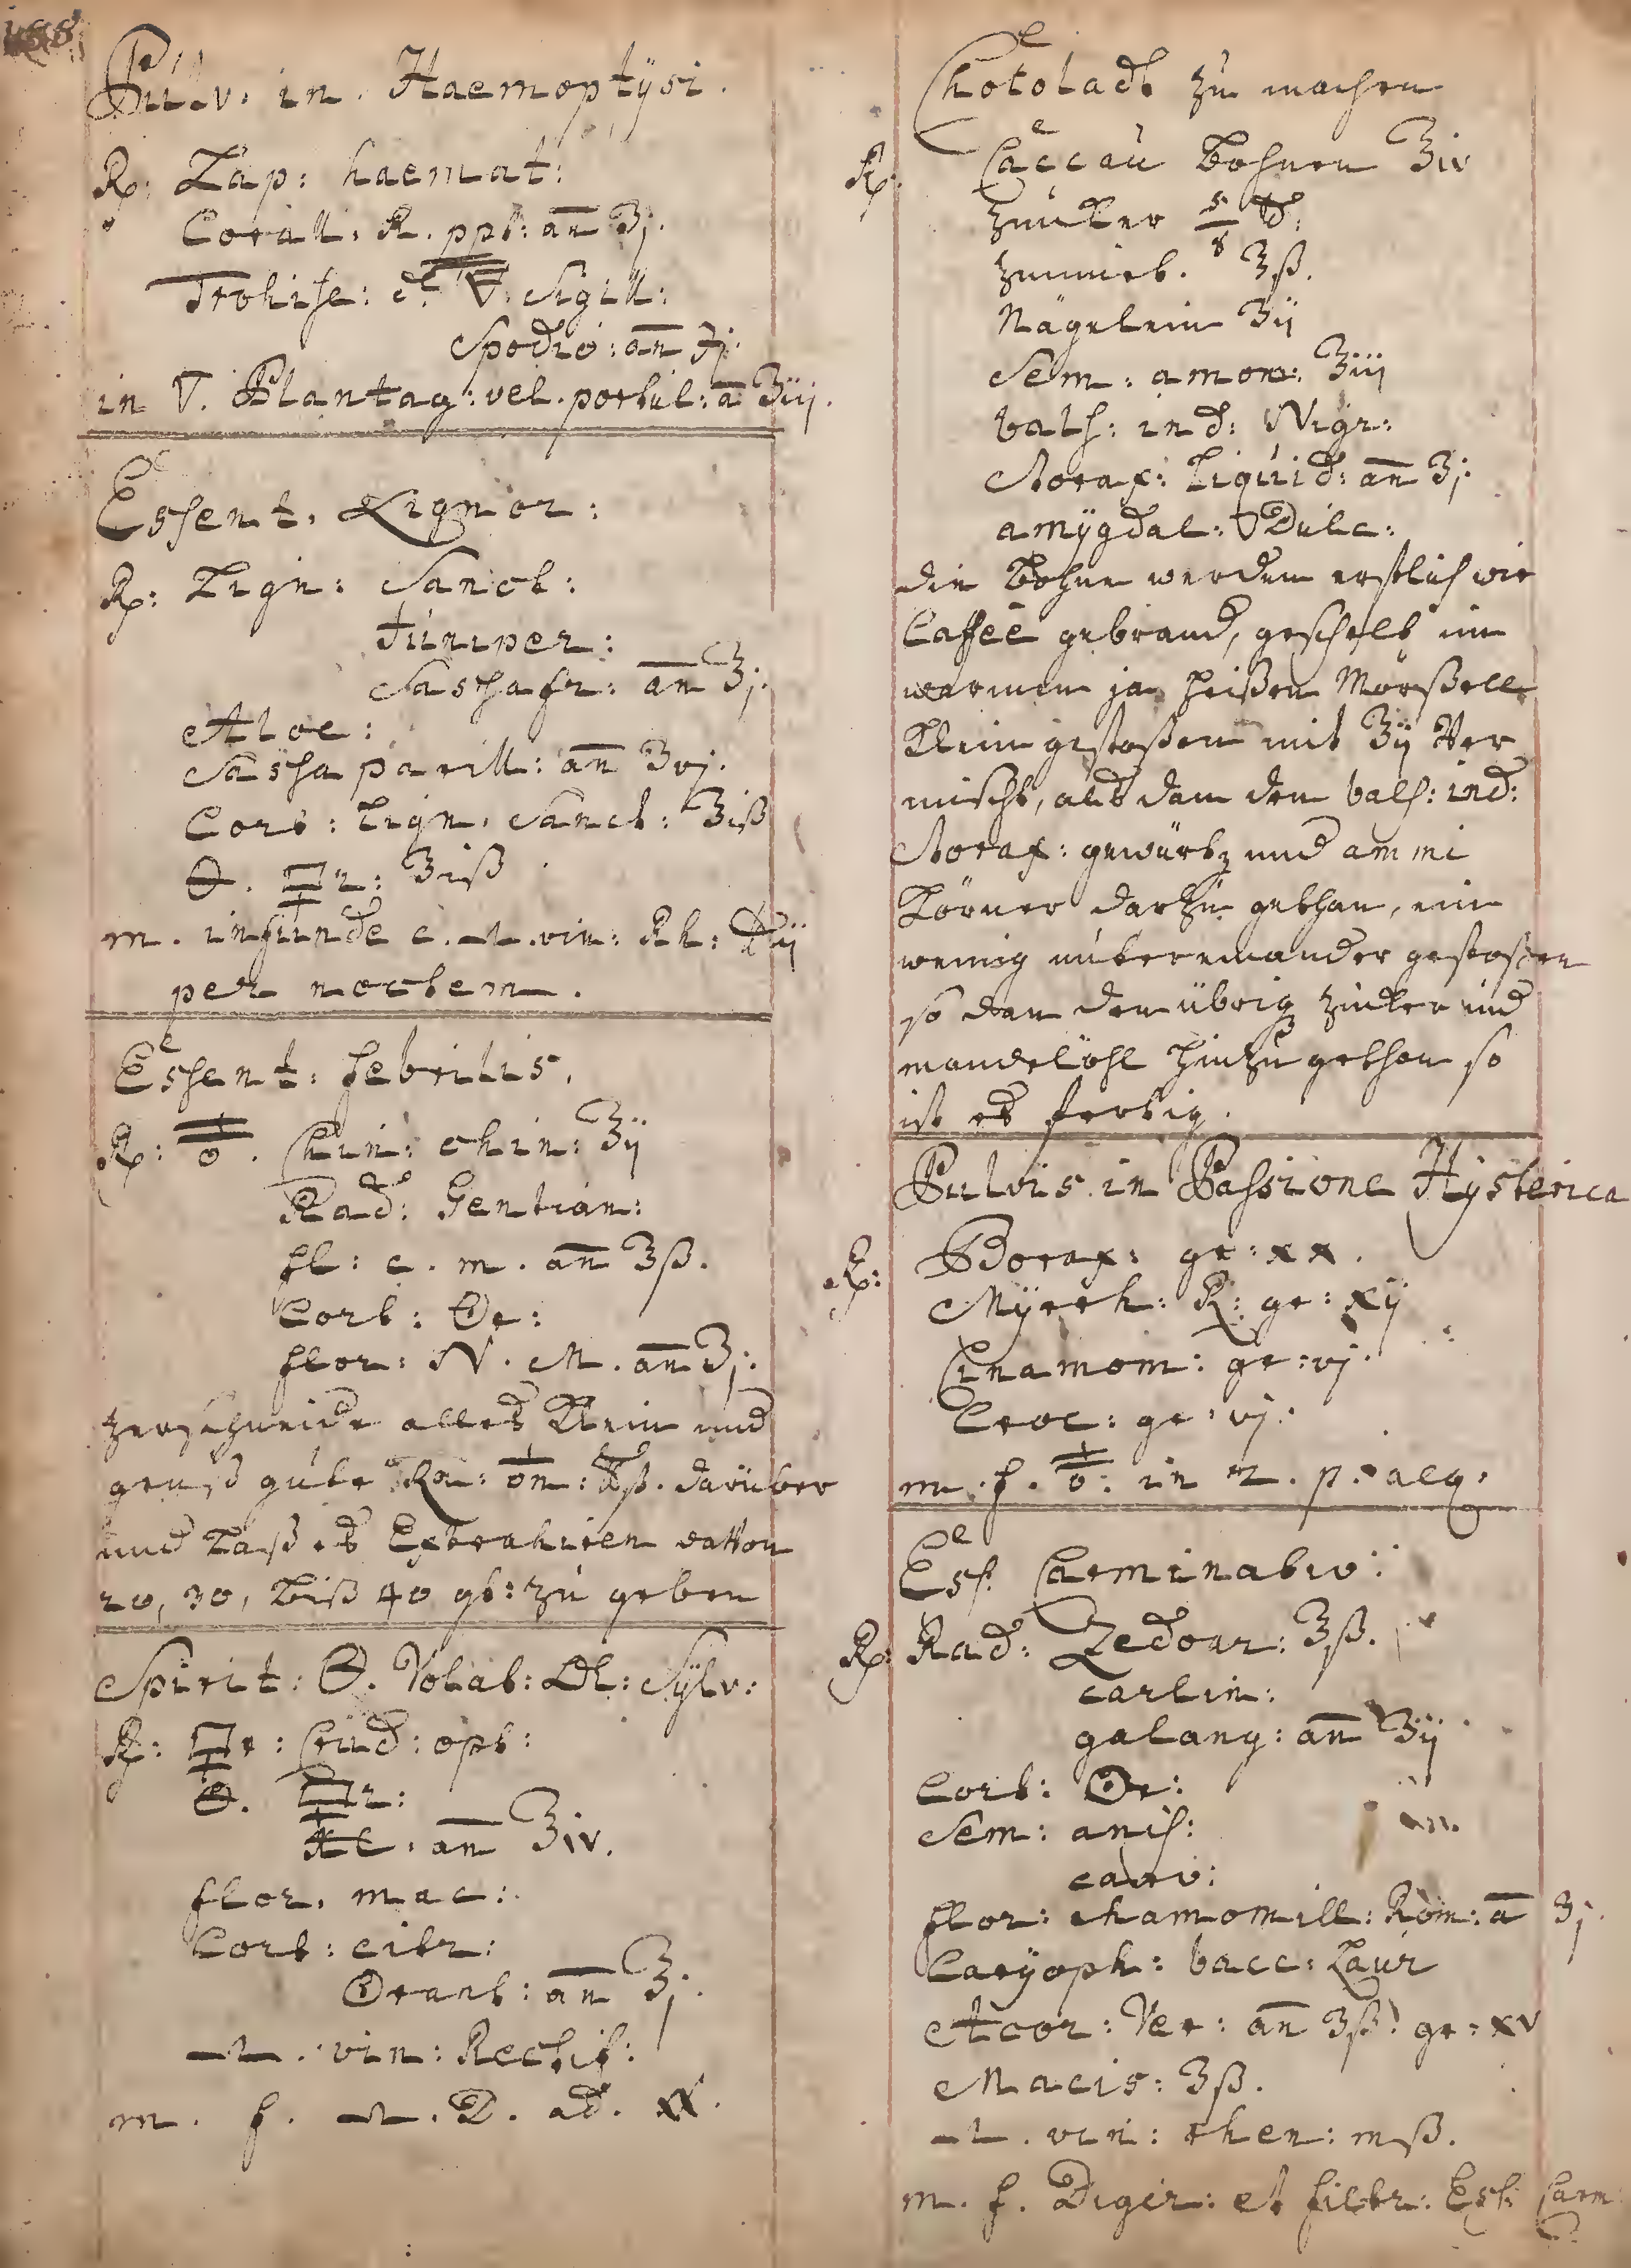 Pulv. in. Haemoptÿsi.
Rp: Lap: haemat:
Corall. R. ppt: an ʒj.
Trohisc: de 🜃. Sigill:
Spodio: an
in 🜄. Plantag: vel. portul: a ʒiij.
Essent. Lignor:
Rp: Lign: Sanct:
Juniper:
Sassafr: an ℥j.
Aloe:
Sassaparill: an ʒvj.
Cort: Lign. Sanct: ʒiß
ʒiß
m. infunde c. vin: Rh: ij
per noctem.
Essent: febrilis.
Rp: Chin: chin: ℥ij
Rad: Gentian:
fl: c. m. an ℥ß.
Cort: Or:
flor: N. M. an ʒj.
zerschneide alles klein und
geuß gute ß. darüber
und laß es Extrahiren davon
20, 30, biß 40 gt: zu geben
Spirit: Volat: Ol: Sÿlv:
Rp: Crud: opt:
an ℥iv.
flor. mac:
Cort: citr:
Orant: an ℥j.
vin: Rectif:
m. f. D. ad. XX.
Chocolade zu machen
Rp: Caccau Bohnen ℥iv
zucker 5/8 ℔:
zimmet. ʒß.
Nägelein ʒij
Sem: amom: ʒiij
bals: ind: Nigr:
Storax: Liquid: an ʒj.
amÿgdal: Dulc:
die Bohne werden erstlich wie
Caffee gebrand, geschelt im
warmen ja heißen Mörßell
klein gestoßen mit ʒij Ver
mischt, als dan den bals: ind:
Storax: gewürtz und ammi
Körner darzu gethan, ein
wenig untereinander gestoßen
so dan den übrig zucker und
mandelöhl hinzu gethan so
ist es fertig.
Pulvis in Passione Hÿsterica
Rp: Borax: gr: xx.
Mÿrrh: R: gr: xij
Cinamom: gr: vj.
Croc: gr: vj.
m. f. in 2. p. aeq.
Ess. Carminativ:
Rp: Rad: Zedoar: ℥ß.
carlin:
galang: an ʒij
Cort: Or:
Sem: anis:
carv:
flor: chamomill: Rom: a ʒj.
Carÿoph: bacc: Laur
Acor: Ver: an ʒß. gr: xv
Macis: ʒß.
vin: rhen: mß.
m. f. Diger: et filtr: Ess: Carm